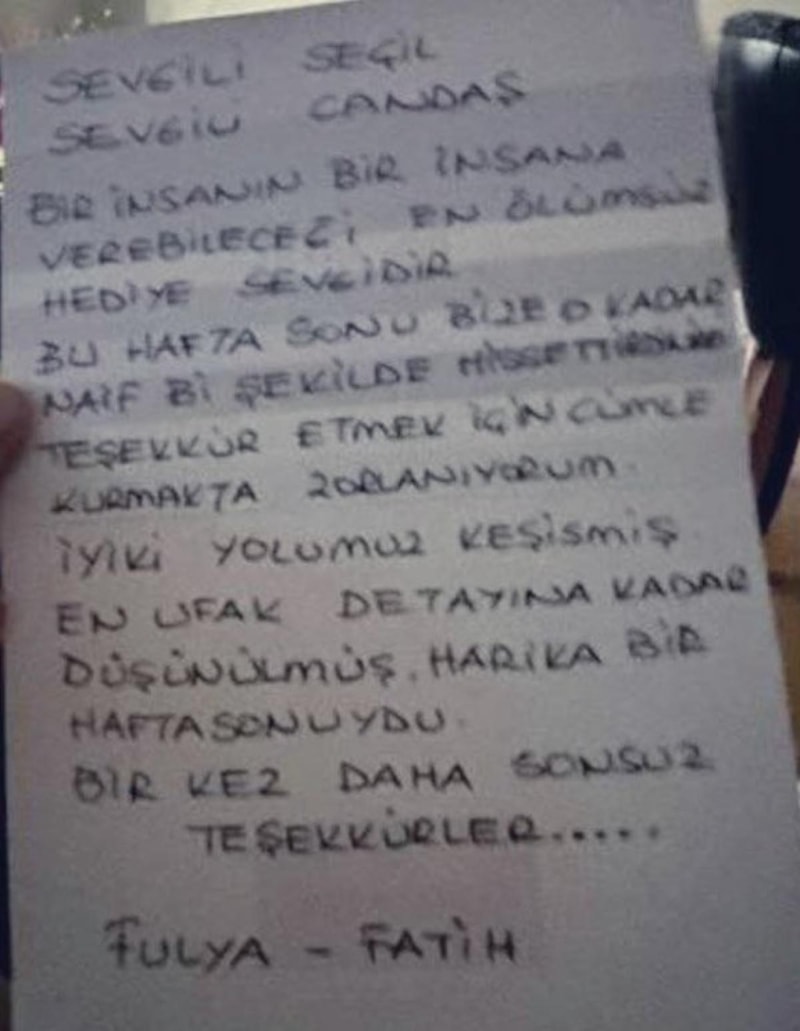 SEVGİLİ SEÇİL
SEVGİLİ CANDAŞ
BİR İNSANIN BİR İNSANA
VEREBİLECEĞİ EN ÖLÜMSÜZ
HEDİYE SEVGİDİR
BU HAFTA SONU BİZE O KADAR
NAİF Bİ ŞEKİLDE HİSSETTİRDİNİZ
TEŞEKKÜR ETMEK İÇİN CÜMLE
KURMAKTA ZORLANIYORUM.
İYİKİ YOLUMUZ KEŞİSMİŞ
EN UFAK DETAYINA KADAR
DÜŞÜNÜLMÜŞ, HARİKA BİR
HAFTASONUYDU.
BİR KEZ DAHA SONSUZ
TEŞEKKÜRLER.....
FULYA - FATİH